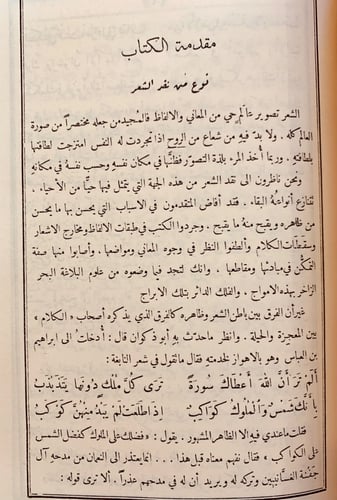 مقدمة الكتاب
نوع من نقد الشعر
الشعر تصوير عالم حي من المعاني والالفاظ فالمجيد من جعله مختصراً من صورة
العالم كله . ولا بد فيه من شعاع من الروح اذا تجردت له النفس امتزجت لطافتها
بلطافته . وربما أخذ المرء بلذة التصور فظنها في مكان نفسه وحسب نفسه في مكانه
ونحن ناظرون الى نقد الشعر من هذه الجهة التي يتمثل فيها حياً من الأحياء .
تتنازع أنواعه البقاء . فقد أفاض المتقدمون في الاسباب التي يحسن بها ما يحسن
من ظاهره ويقبح منه ما يقبح . وجردوا الكتب في طبقات الالفاظ ومخارج الاشعار
وسقطات الكلام وألطفوا النظر في وجوه المعاني ومواضعها . وأصابوا منها صفة
التمكن في مباديها ومقاطعها . وانك لتجد فيما وضعوه من علوم البلاغة البحر
الزاخر بهذه الامواج . والفلك الدائر بتلك الابراج
غير أن الفرق بين باطن الشعر وظاهره كالفرق الذي يذكره أصحاب « الكلام »
بين المعجزة والحيلة . وانظر ما حدث به أبو ذكوان قال : أُدخلت الى ابراهيم
بن العباس وهو بالاهواز لخدمته فقال ما تقول في شعر النابغة :
أَلم تر أَنَّ اللهَ أعطاك سورةً ترى كلَّ مَلْك دونها يتذبذب
بأنك شمسٌ والملوك كواكبٌ إذا طلعت لم يبدُ منهن كوكب
فقلت ما عندي فيه الا الظاهر المشهور . يقول : « فضلك على الملوك كفضل الشمس
على الكواكب » فقال نفهم معناه قبل هذا ... انما يعتذر الى النعمان من مدحه آل
جفنة الغسانيين وتركه له ويريد أن له في مدحهم عذراً . ألا ترى قوله :